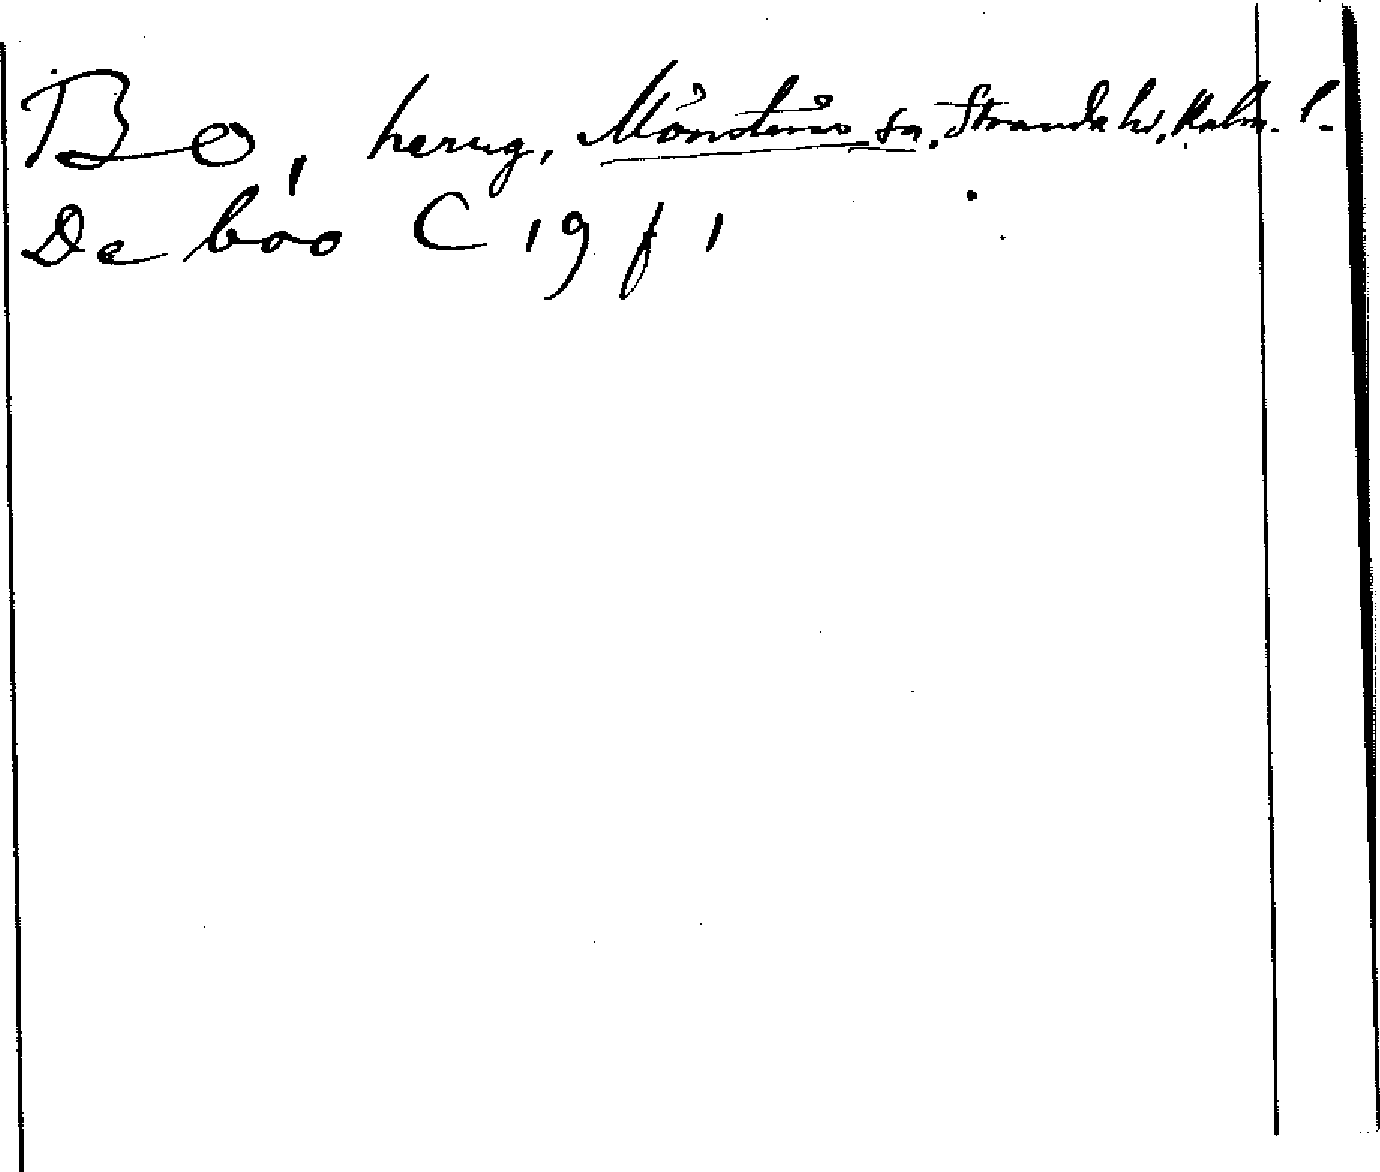 Bo, herug, Mönsterås sn, Stranda hd, Kalm. l.
De boo C 19 f 1